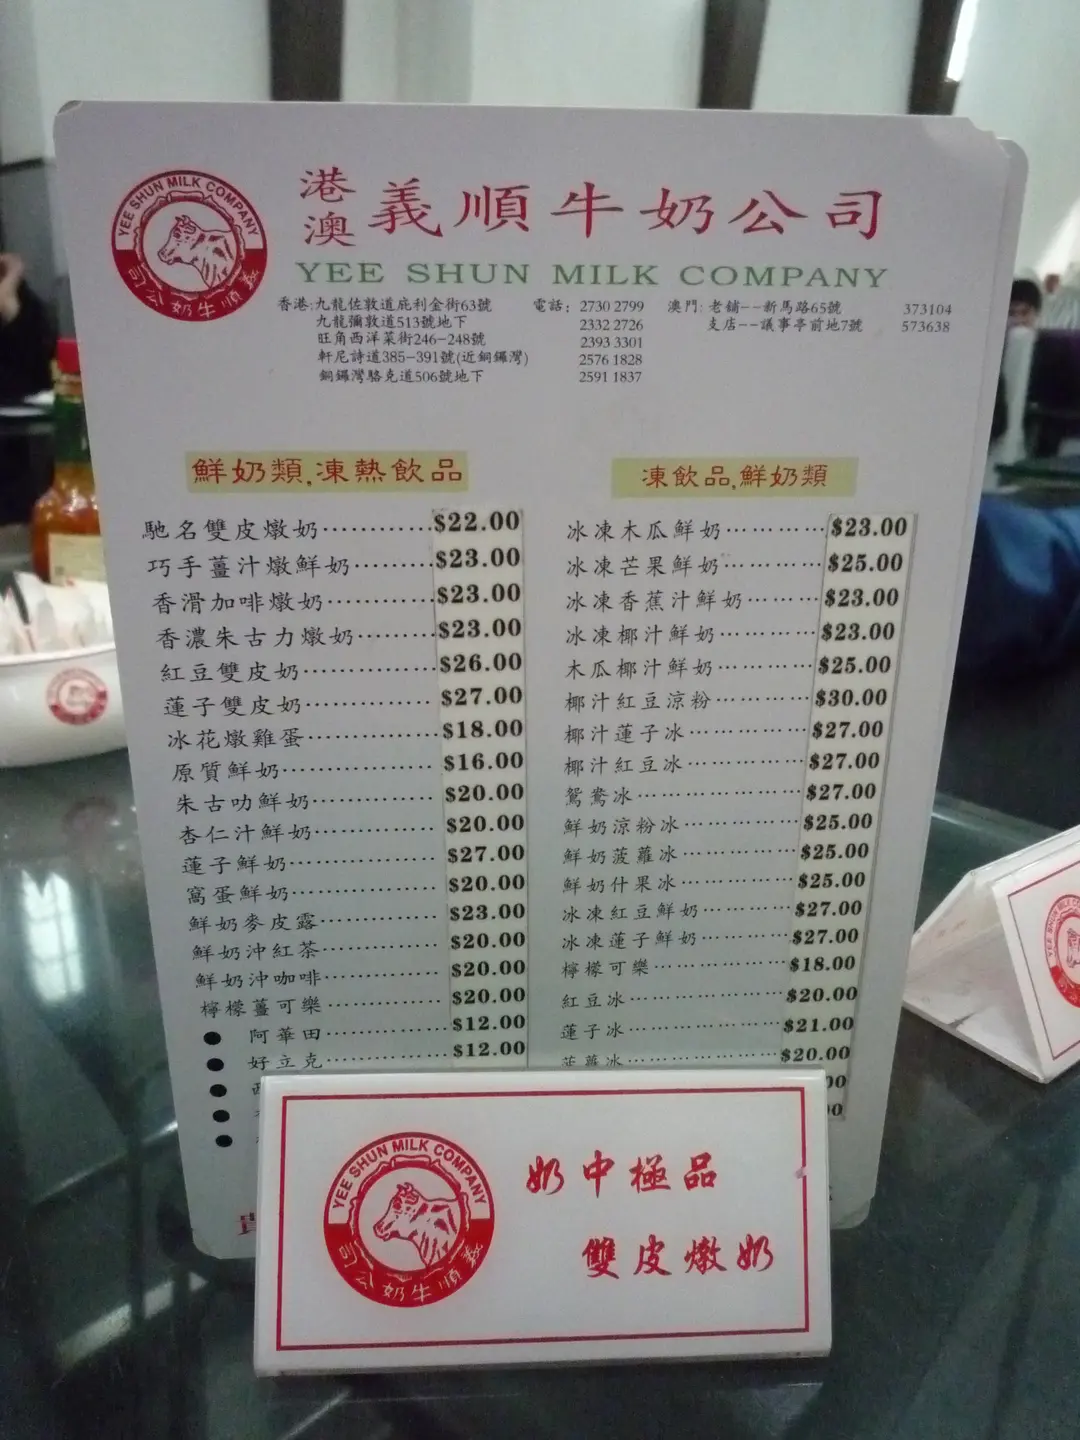 YEE SHUN MILK COMPANY
司公奶牛順義
港澳義順牛奶公司
YEE SHUN MILK COMPANY
香港:九龍佐敦道庇利金街63號 電話: 2730 2799 澳門: 老鋪--新馬路65號 373104
九龍彌敦道513號地下 2332 2726 支店--議事亭前地7號 573638
旺角西洋菜街246-248號 2393 3301
軒尼詩道385-391號(近銅鑼灣) 2576 1828
銅鑼灣駱克道506號地下 2591 1837
鮮奶類,凍熱飲品
馳名雙皮燉奶 $22.00
巧手薑汁燉鮮奶 $23.00
香滑加啡燉奶 $23.00
香濃朱古力燉奶 $23.00
紅豆雙皮奶 $26.00
蓮子雙皮奶 $27.00
冰花燉雞蛋 $18.00
原質鮮奶 $16.00
朱古叻鮮奶 $20.00
杏仁汁鮮奶 $20.00
蓮子鮮奶 $27.00
窩蛋鮮奶 $20.00
鮮奶麥皮露 $23.00
鮮奶沖紅茶 $20.00
鮮奶沖咖啡 $20.00
檸檬薑可樂 $20.00
● 阿華田 $12.00
● 好立克 $12.00
凍飲品,鮮奶類
冰凍木瓜鮮奶 $23.00
冰凍芒果鮮奶 $25.00
冰凍香蕉汁鮮奶 $23.00
冰凍椰汁鮮奶 $23.00
木瓜椰汁鮮奶 $25.00
椰汁紅豆涼粉 $30.00
椰汁蓮子冰 $27.00
椰汁紅豆冰 $27.00
鴛鴦冰 $27.00
鮮奶涼粉冰 $25.00
鮮奶菠蘿冰 $25.00
鮮奶什果冰 $25.00
冰凍紅豆鮮奶 $27.00
冰凍蓮子鮮奶 $27.00
檸檬可樂 $18.00
紅豆冰 $20.00
蓮子冰 $21.00
菠蘿冰 $20.00
YEE SHUN MILK COMPANY
司公奶牛順義
奶中極品
雙皮燉奶